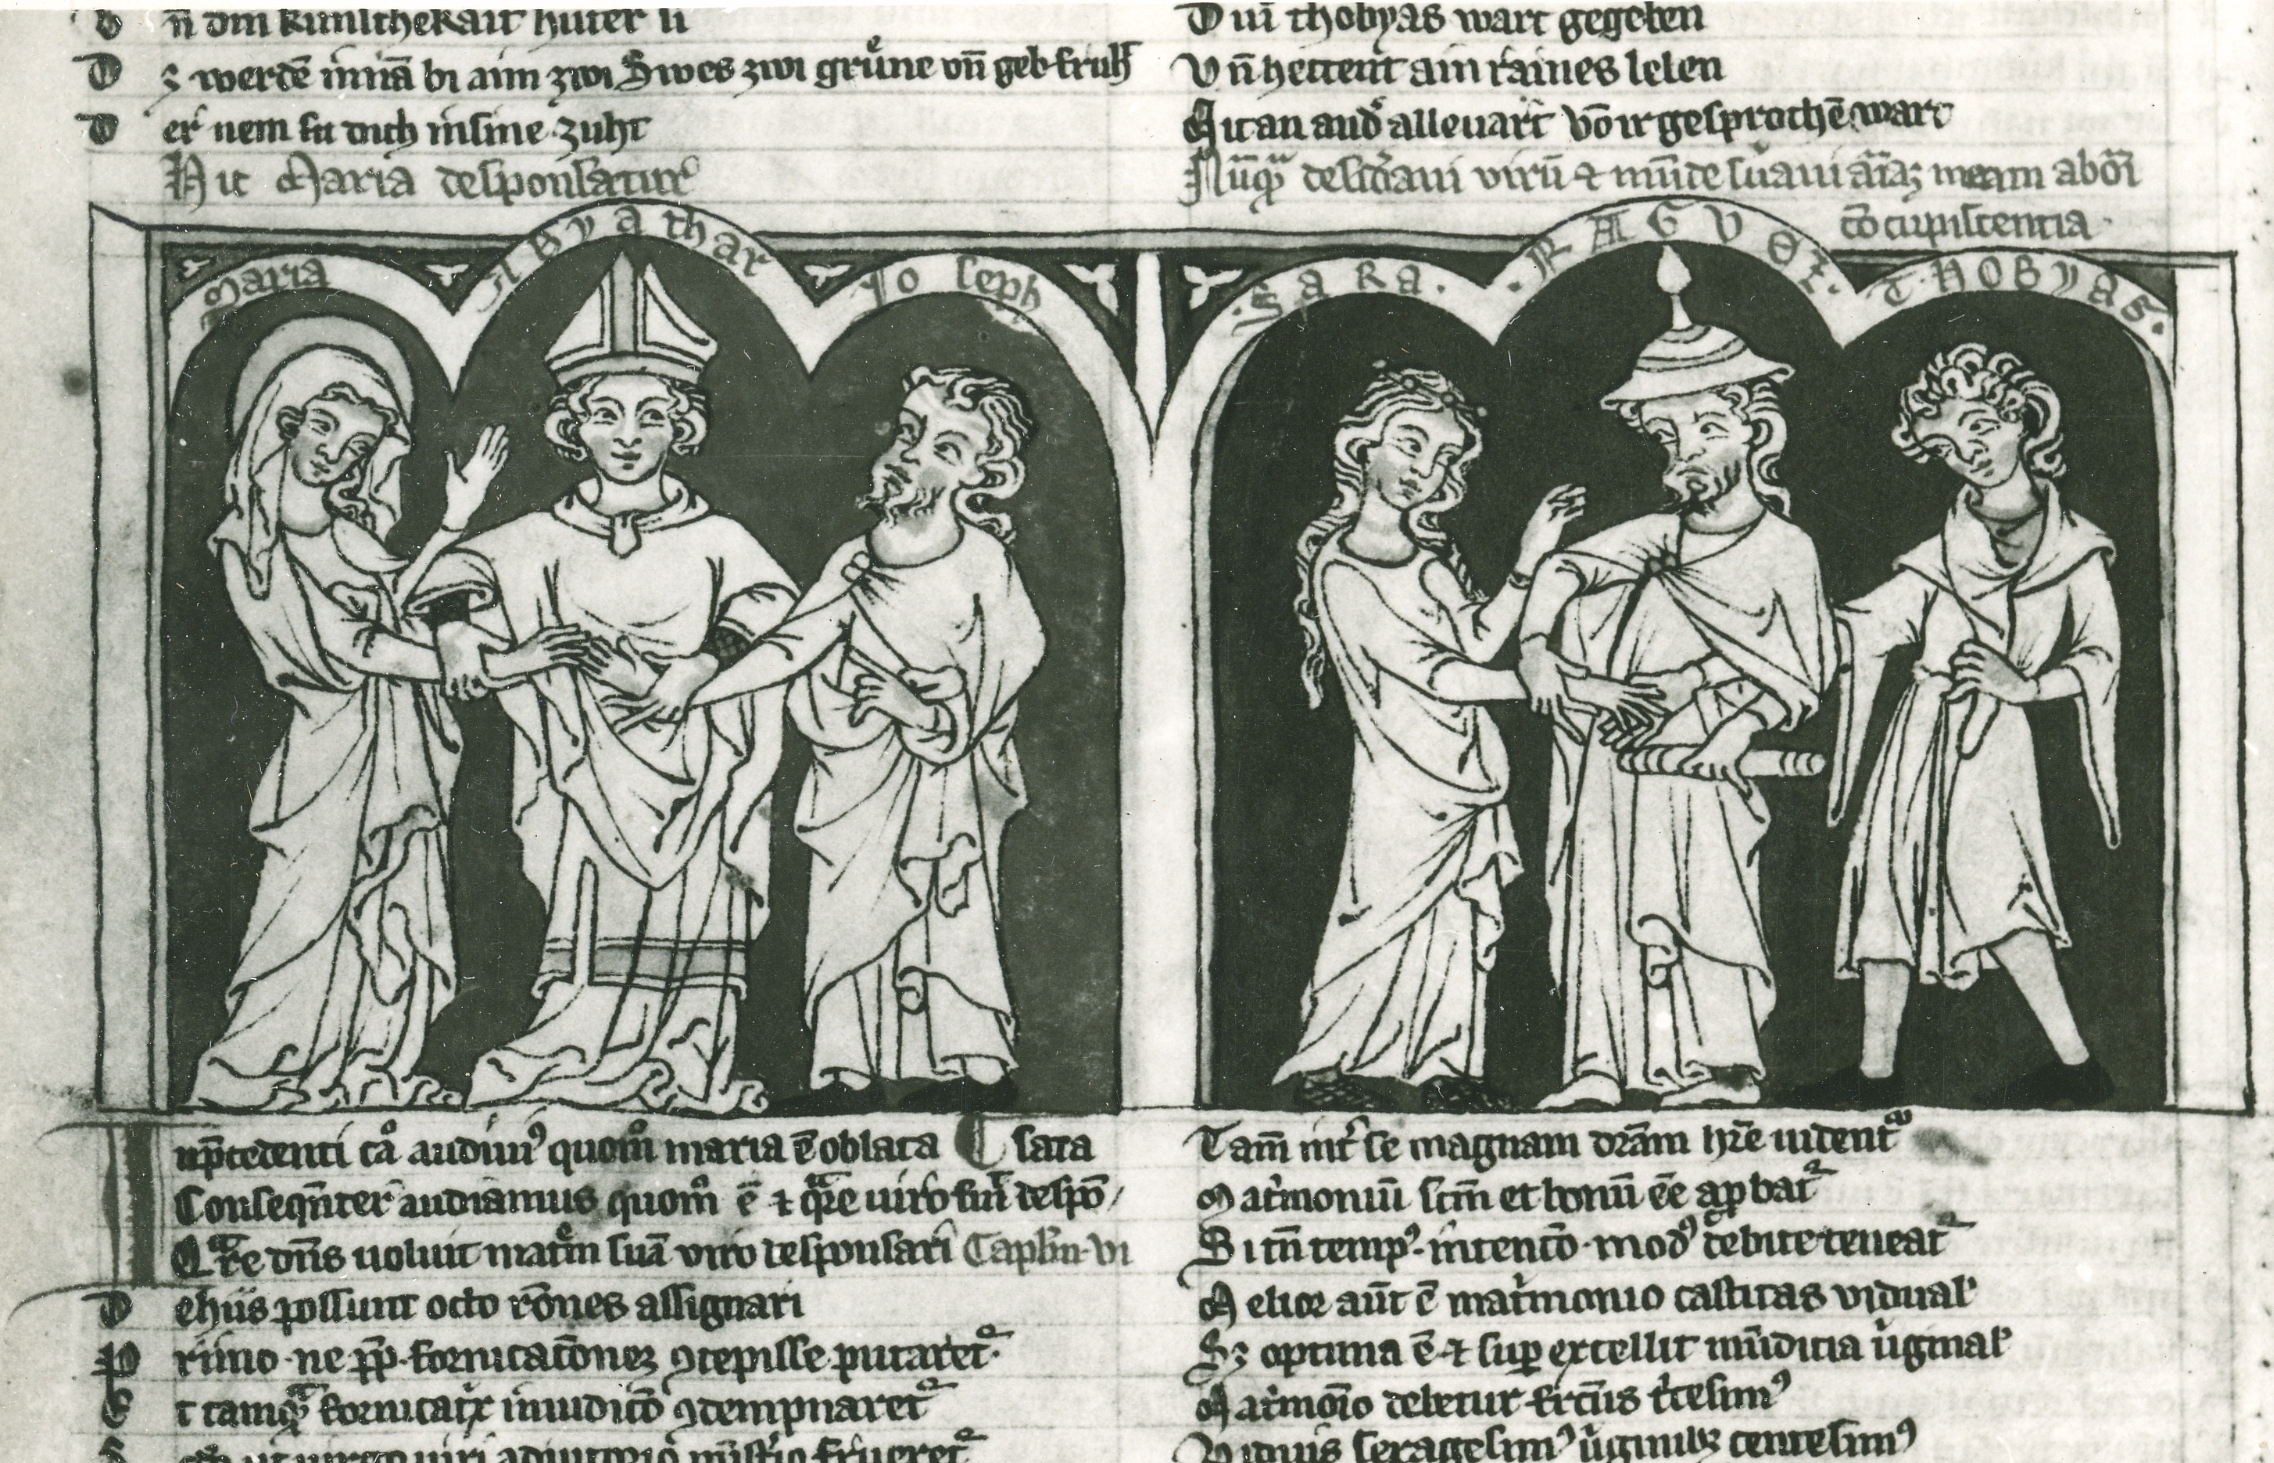 vñ din künschekait hüter si
Dz werdē innā bi aim zwi Swes zwi grůne vñ geb fruht
Der nem su dich in sine zuht
Hic Maria desponsatur
Dim thobyas wart gegeben
Vñ hettent ain raines leben
Mit an and alle vart võ ir gesprochē wart
Nūq̄ desid'aui virū ⁊ mūde s'uaui aīaꝫ meam ab oī
cōcupiscentia
Maria
Abyathar
Joseph
SARA.
.RAGVEL.
THOBYAS.
In p̄cedenti ca° audiuimꝰ quom° maria ē oblata
Consequēter audiamus quom° ē ⁊ q̄re uiro suo despōsata
Qare dn̄s uoluit mat'm suā viro desponsari Caplm vi
De hiis possunt octo rōnes assignari
Primo ne ꝓp̄ fornicatōneꝫ ꝯcepisse putaret'
Et tamq̄ fornicat'x in iudicō ꝯdempnaret'
ut uirgo uiri adiutorio mīst'io frueret'
Tam̄ int' se magnam dr̄am hr̄e uident'
Mat'moniū scm̄ et bonū eē apbat'
Si tn̄ tempꝰ intentō modꝰ debite teneat'
Melior aūt ē mat'monio castitas vidual'
Sꝫ optima ē ⁊ sup excellit mūdicia v'ginal'
Mat'moīo debetur fructus t'cesimꝰ
Viduis sexagesimꝰ v'ginibꝫ centesimꝰ